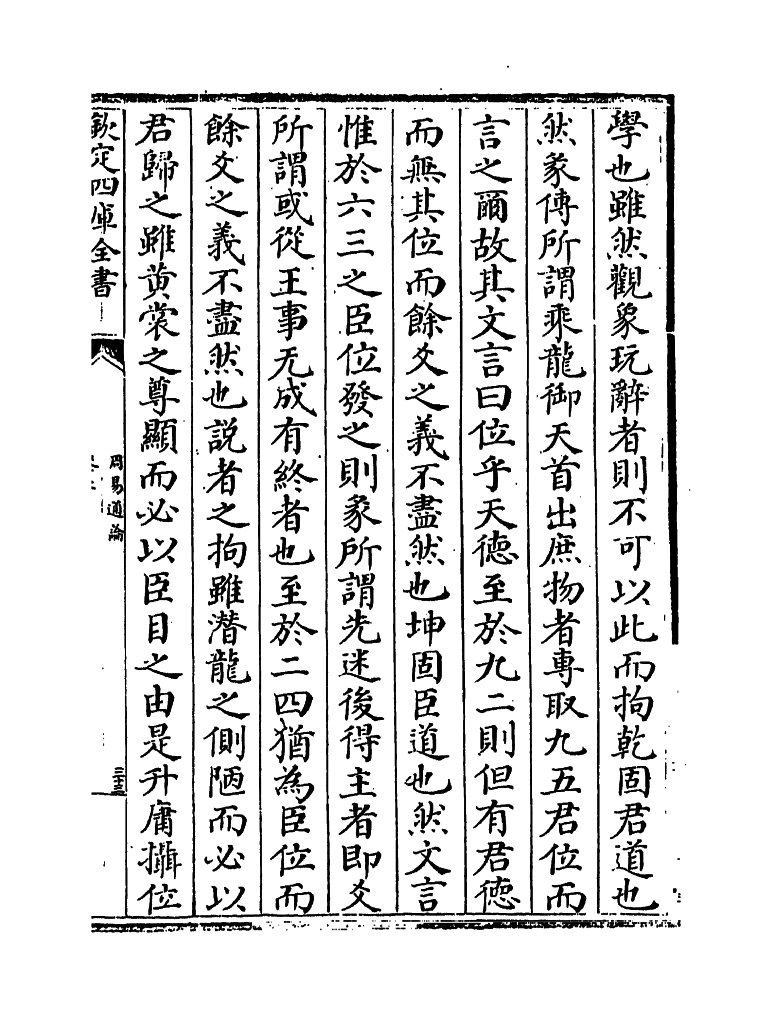 學也雖然觀象玩辭者則不可以此而拘乾固君道也
然彖傳所謂乘龍御天首出庶物者專取九五君位而
言之爾故其文言曰位乎天德至於九二則但有君德
而無其位而餘爻之義不盡然也坤固臣道也然文言
惟於六三之臣位發之則彖所謂先迷後得主者即爻
所謂或從王事无成有終者也至於二四猶為臣位而
餘爻之義不盡然也說者之拘雖潛龍之側陋而必以
君歸之雖黃裳之尊顯而必以臣目之由是升庸攝位
欽定四庫全書
周易通論
三十三